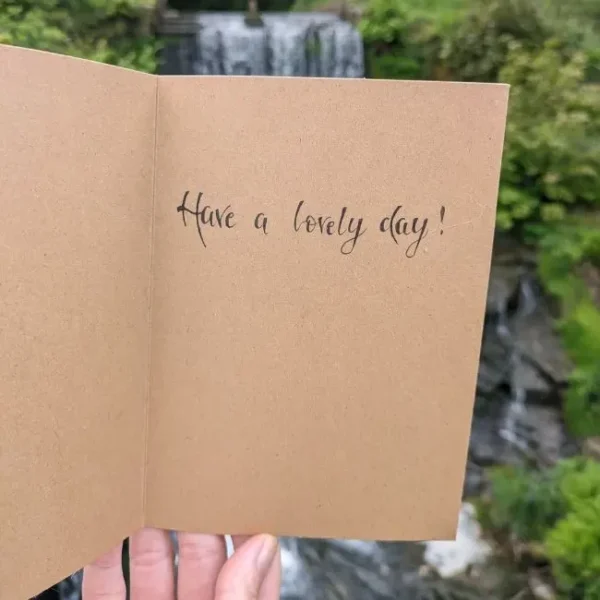 Have a lovely day!